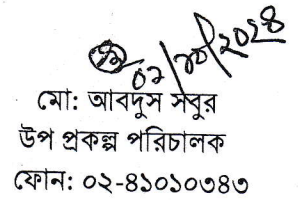 ০২/১০/২০২৪
মো: আবদুস সবুর
উপ প্রকল্প পরিচালক
ফোন: ০২-৪১০১০৩৪৩